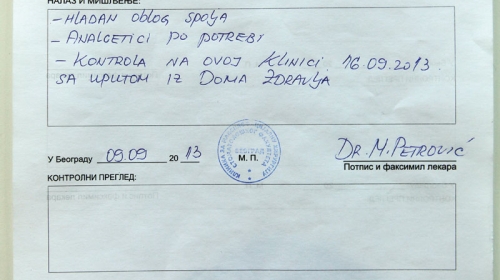 НАЛАЗ И МИШЉЕЊЕ:
- HLADAN OBLOG SPOLJA
- ANALGETICI PO POTREBI
- KONTROLA NA OVOJ KLINICI 16.09.2013.
SA UPUTOM IZ DOMA ZDRAVLJA
У Београду 09.09 2013 М. П. DR. M. PETROVIĆ
Потпис и факсимил лекара
КОНТРОЛНИ ПРЕГЛЕД: